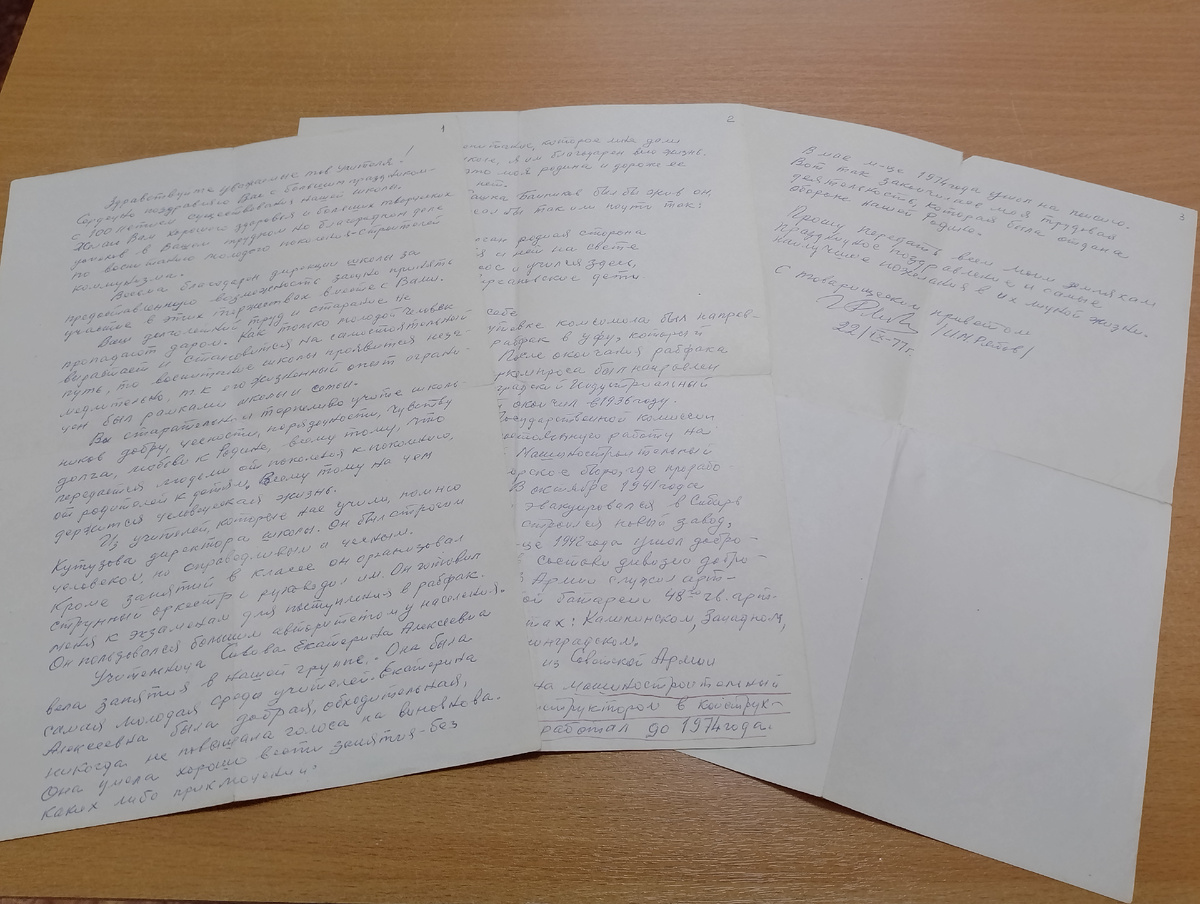 1
Здравствуйте уважаемые тов учителя!
Сердечно поздравляю Вас с большим праздником-
с 100 летием существования нашей школы.
Желаю Вам хорошего здоровья и больших творческих
успехов в Вашем трудном но благородном деле
по воспитанию молодого поколения-строителей
коммунизма.
благодарен дирекции школы за
предоставленную возможность заочно принять
участие в этих торжествах вместе с Вами.
Ваш многолетний труд и старание не
пропадают даром. Как только молодой человек
вырастает и становится на самостоятельный
путь, то воспитание школы проявится неза-
медлительно, т.к. его жизненный опыт ограни-
чен был рамками школы и семьи.
Вы старательно и терпеливо учите школь-
ников добру, честности, порядочности, чувству
долга, любви к Родине, всему тому, что
передается людьми от поколения к поколению,
от родителей к детям, всему тому на чем
держится человеческая жизнь.
Из учителей, которые нас учили, помню
Кутузова директора школы. Он был строгим
человеком, но справедливым и чесным.
Кроме занятий в классе он организовал
струнный оркестр и руководил им. Он готовил
меня к экзаменам для поступления в рабфак.
Он пользовался большим авторитетом у населения.
Учительница Сивова Екатерина Алексеевна
вела занятия в нашей группе. Она была
самая молодая среди учителей. Екатерина
Алексеевна была добрая, обходительная,
никогда не повышала голоса на виновнова.
Она умела хорошо вести занятия-без
каких либо приключений.
2
которое мне дали
я им благодарен всю жизнь.
это моя родина и дороже ее
нет.
был бы жив он,
так или почти так:
родная сторона
и ней на свете
и учился здесь,
дети
себе
комсомола был направ-
рабфак в Уфу, который
После окончания рабфака
был направлен
Индустриальный
окончил в 1936 году.
Государственной комиссии
работу на
Машиностроительный
бюро, где прорабо-
В октябре 1941 года
эвакуировался в Сибирь
новый завод.
1942 года ушел добро-
составе дивизии добро-
Армии служил арт-
батареи 48ом гв. арт-
Калининском, Западном,
из Советской Армии
на машиностроительный
в конструк-
работал до 1974 года.
3
В мае м-це 1974 года ушел на пенсию.
Вот так закончилась моя трудовая
деятельность, которая была отдана
обороне нашей Родине.
Прошу передать всем моим землякам
праздничное поздравление и самые
наилучшие пожелания в их личной жизни.
С товарищеским приветом
22/IX-77г.